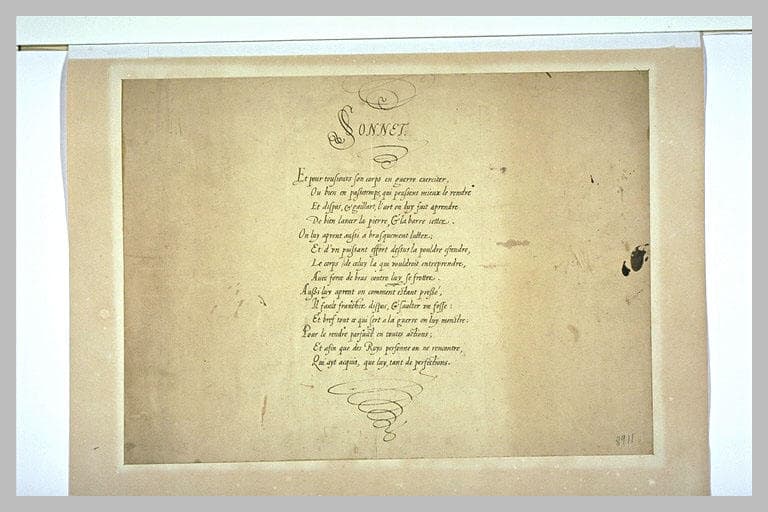 SONNET.
Et pour tousiours son corps en guerre exerciter,
Ou bien en passetemps, qui peussent mieux le rendre
Et dispos, & gaillart, l'art on luy fait aprendre
De bien lancer la pierre, & la barre ietter.
On luy aprent aussi a brusquement lutter;
Et d'vn puissant effort dessus la pouldre estendre,
Le corps de celuy la qui vouldroit entreprendre,
Avec force de bras contre luy se frotter.
Aussi luy aprent on comment estant pressé,
Il fault franchir dispos, & saulter vn fosse:
Et bref tout ce qui sert a la guerre on luy monstre:
Pour le rendre parfaict en toutes actions;
Et afin que des Roys personne on ne rencontre,
Qui ayt acquis, que luy, tant de perfections.
8911